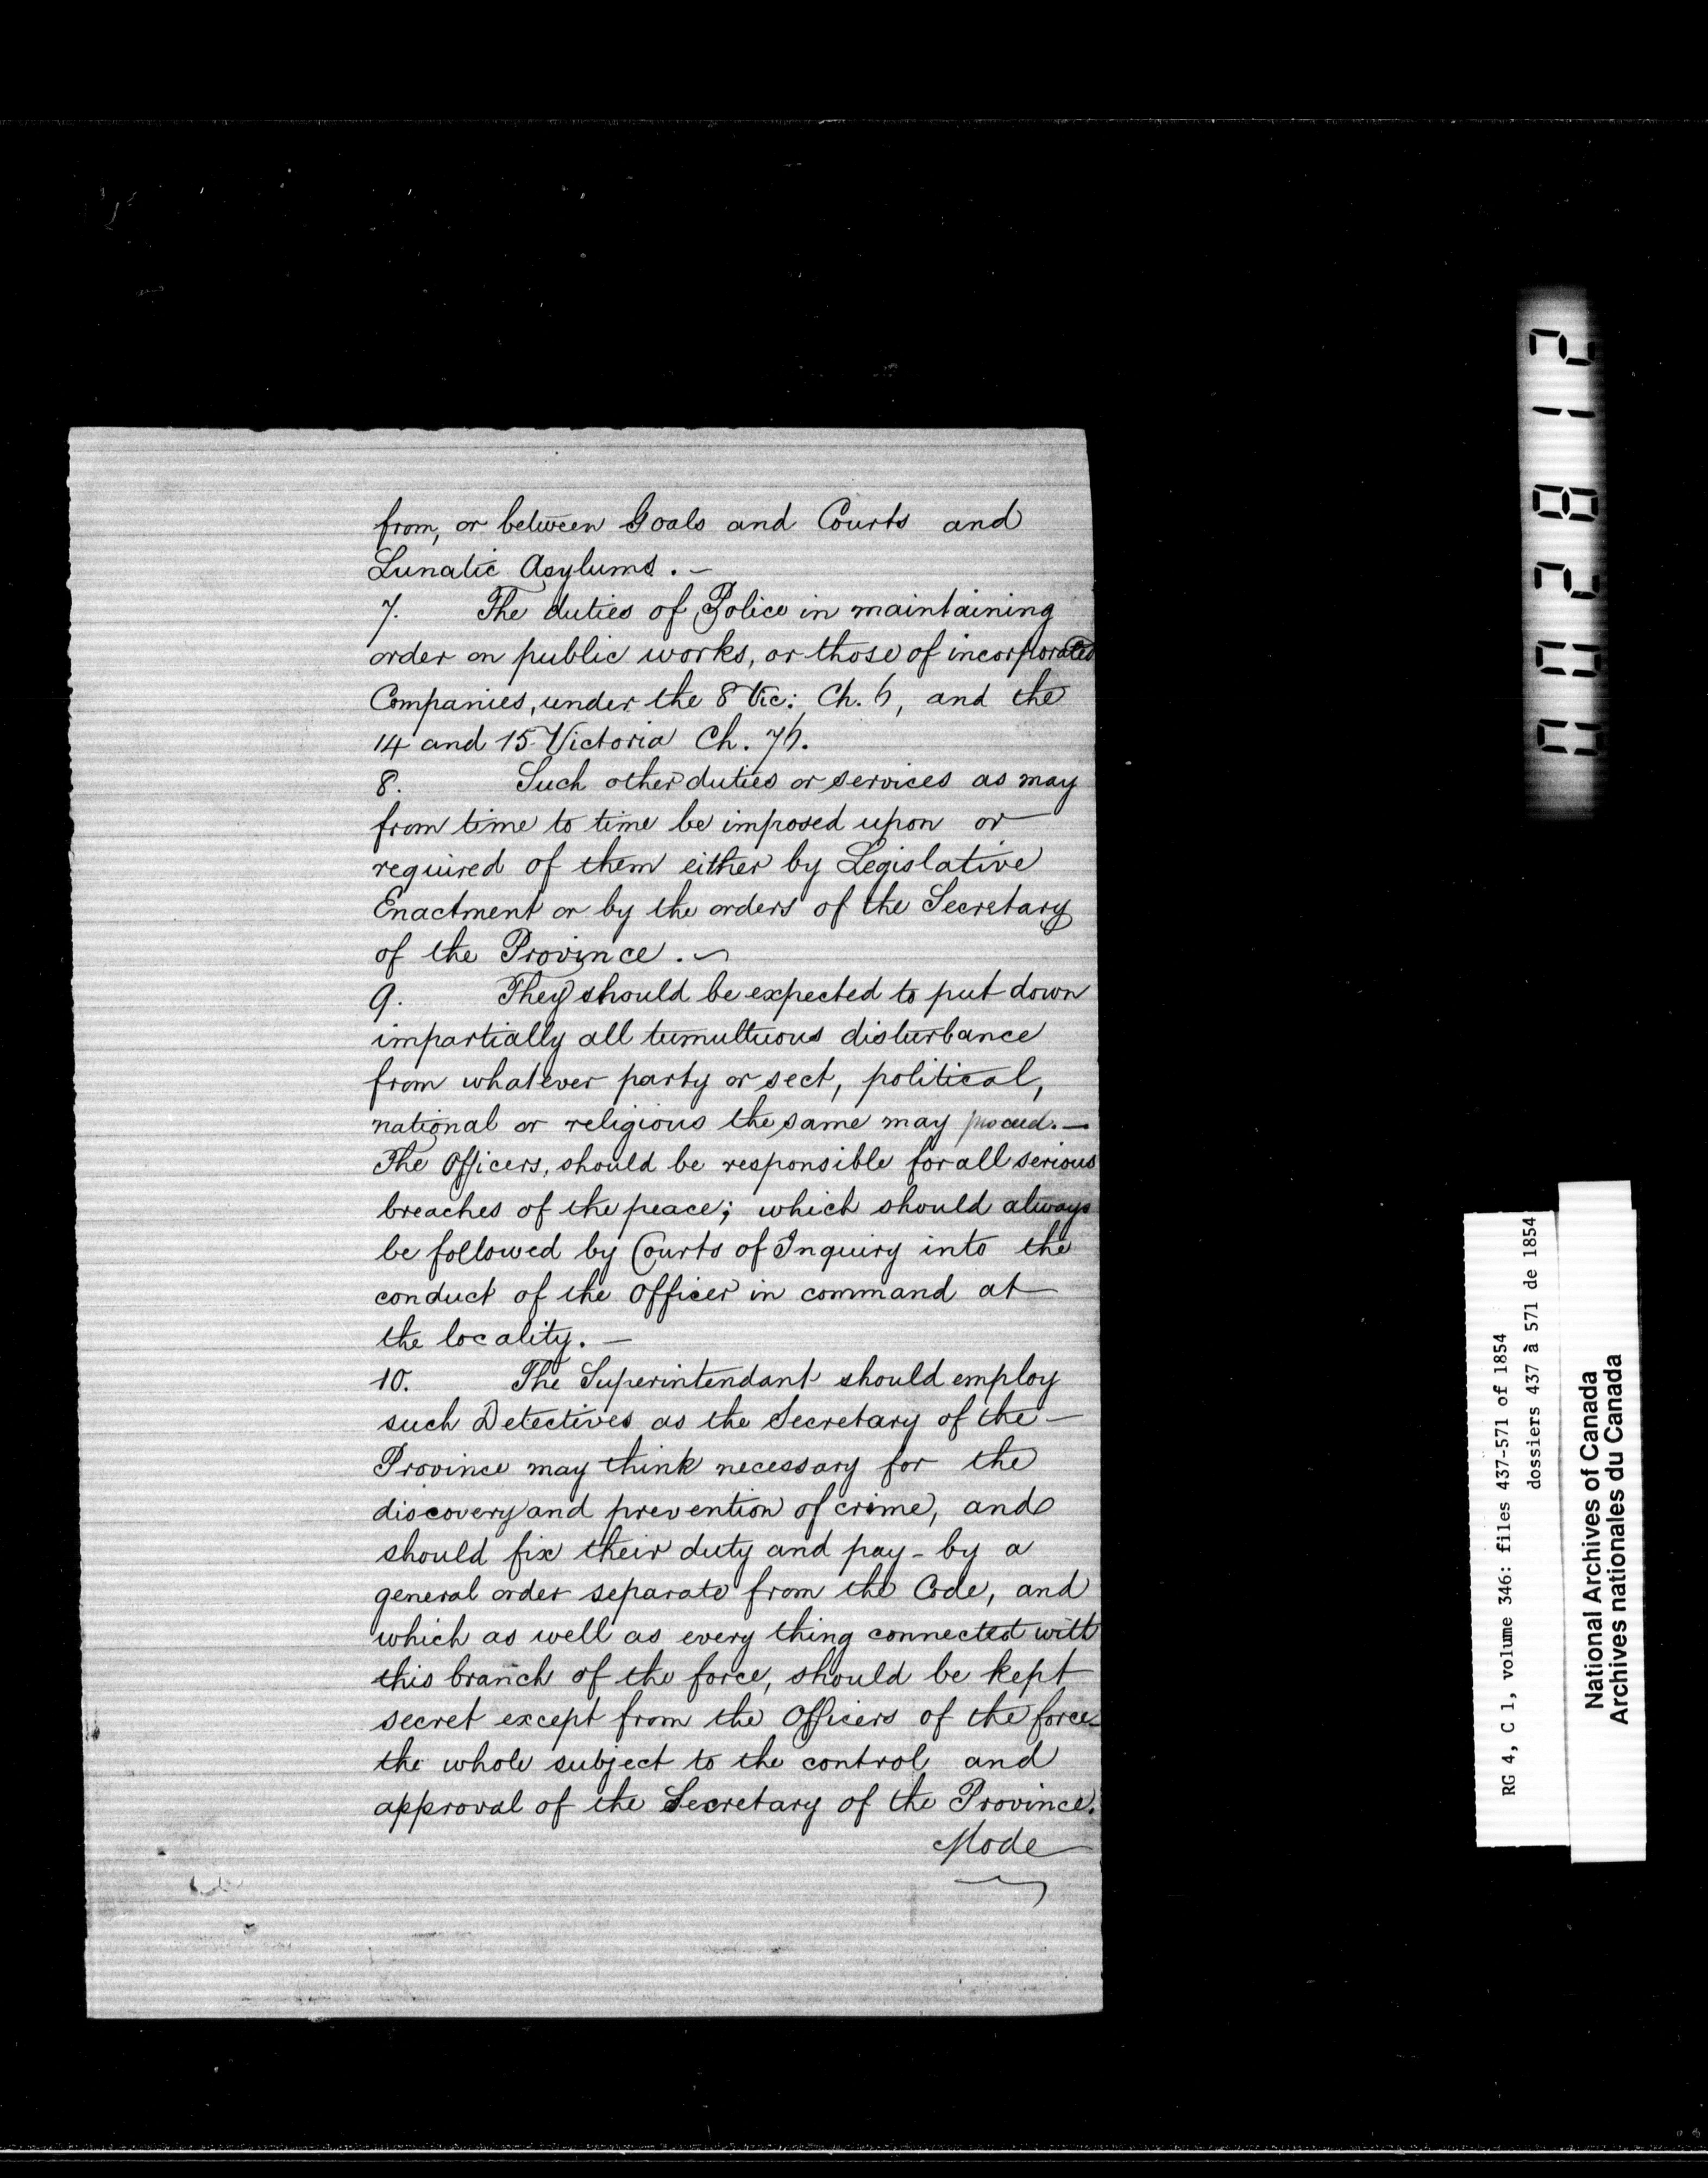 from, or between Goals and Courts and
Lunatic Asylums. –
7. The duties of Police in maintaining
order on public works, or those of incorporated
Companies, under the 8 Vic: Ch. 6, and the
14 and 15 Victoria Ch. 76.
8. Such other duties or services as may
from time to time be imposed upon or
required of them either by Legislative
Enactment or by the orders of the Secretary
of the Province. –
9. They should be expected to put down
impartially all tumultuous disturbance
from whatever party or sect, political,
national or religious the same may proceed. –
The Officers, should be responsible for all serious
breaches of the peace; which should always
be followed by Courts of Inquiry into the
conduct of the Officer in command at
the locality. –
10. The Superintendant should employ
such Detectives as the Secretary of the –
Province may think necessary for the
discovery and prevention of crime, and
should fix their duty and pay – by a
general order separate from the Code, and
which as well as every thing connected with
this branch of the force, should be kept
secret except from the Officers of the force
the whole subject to the control and
approval of the Secretary of the Province.
Mode
002812
RG 4, C 1, volume 346: files 437-571 of 1854
dossiers 437 à 571 de 1854
National Archives of Canada
Archives nationales du Canada